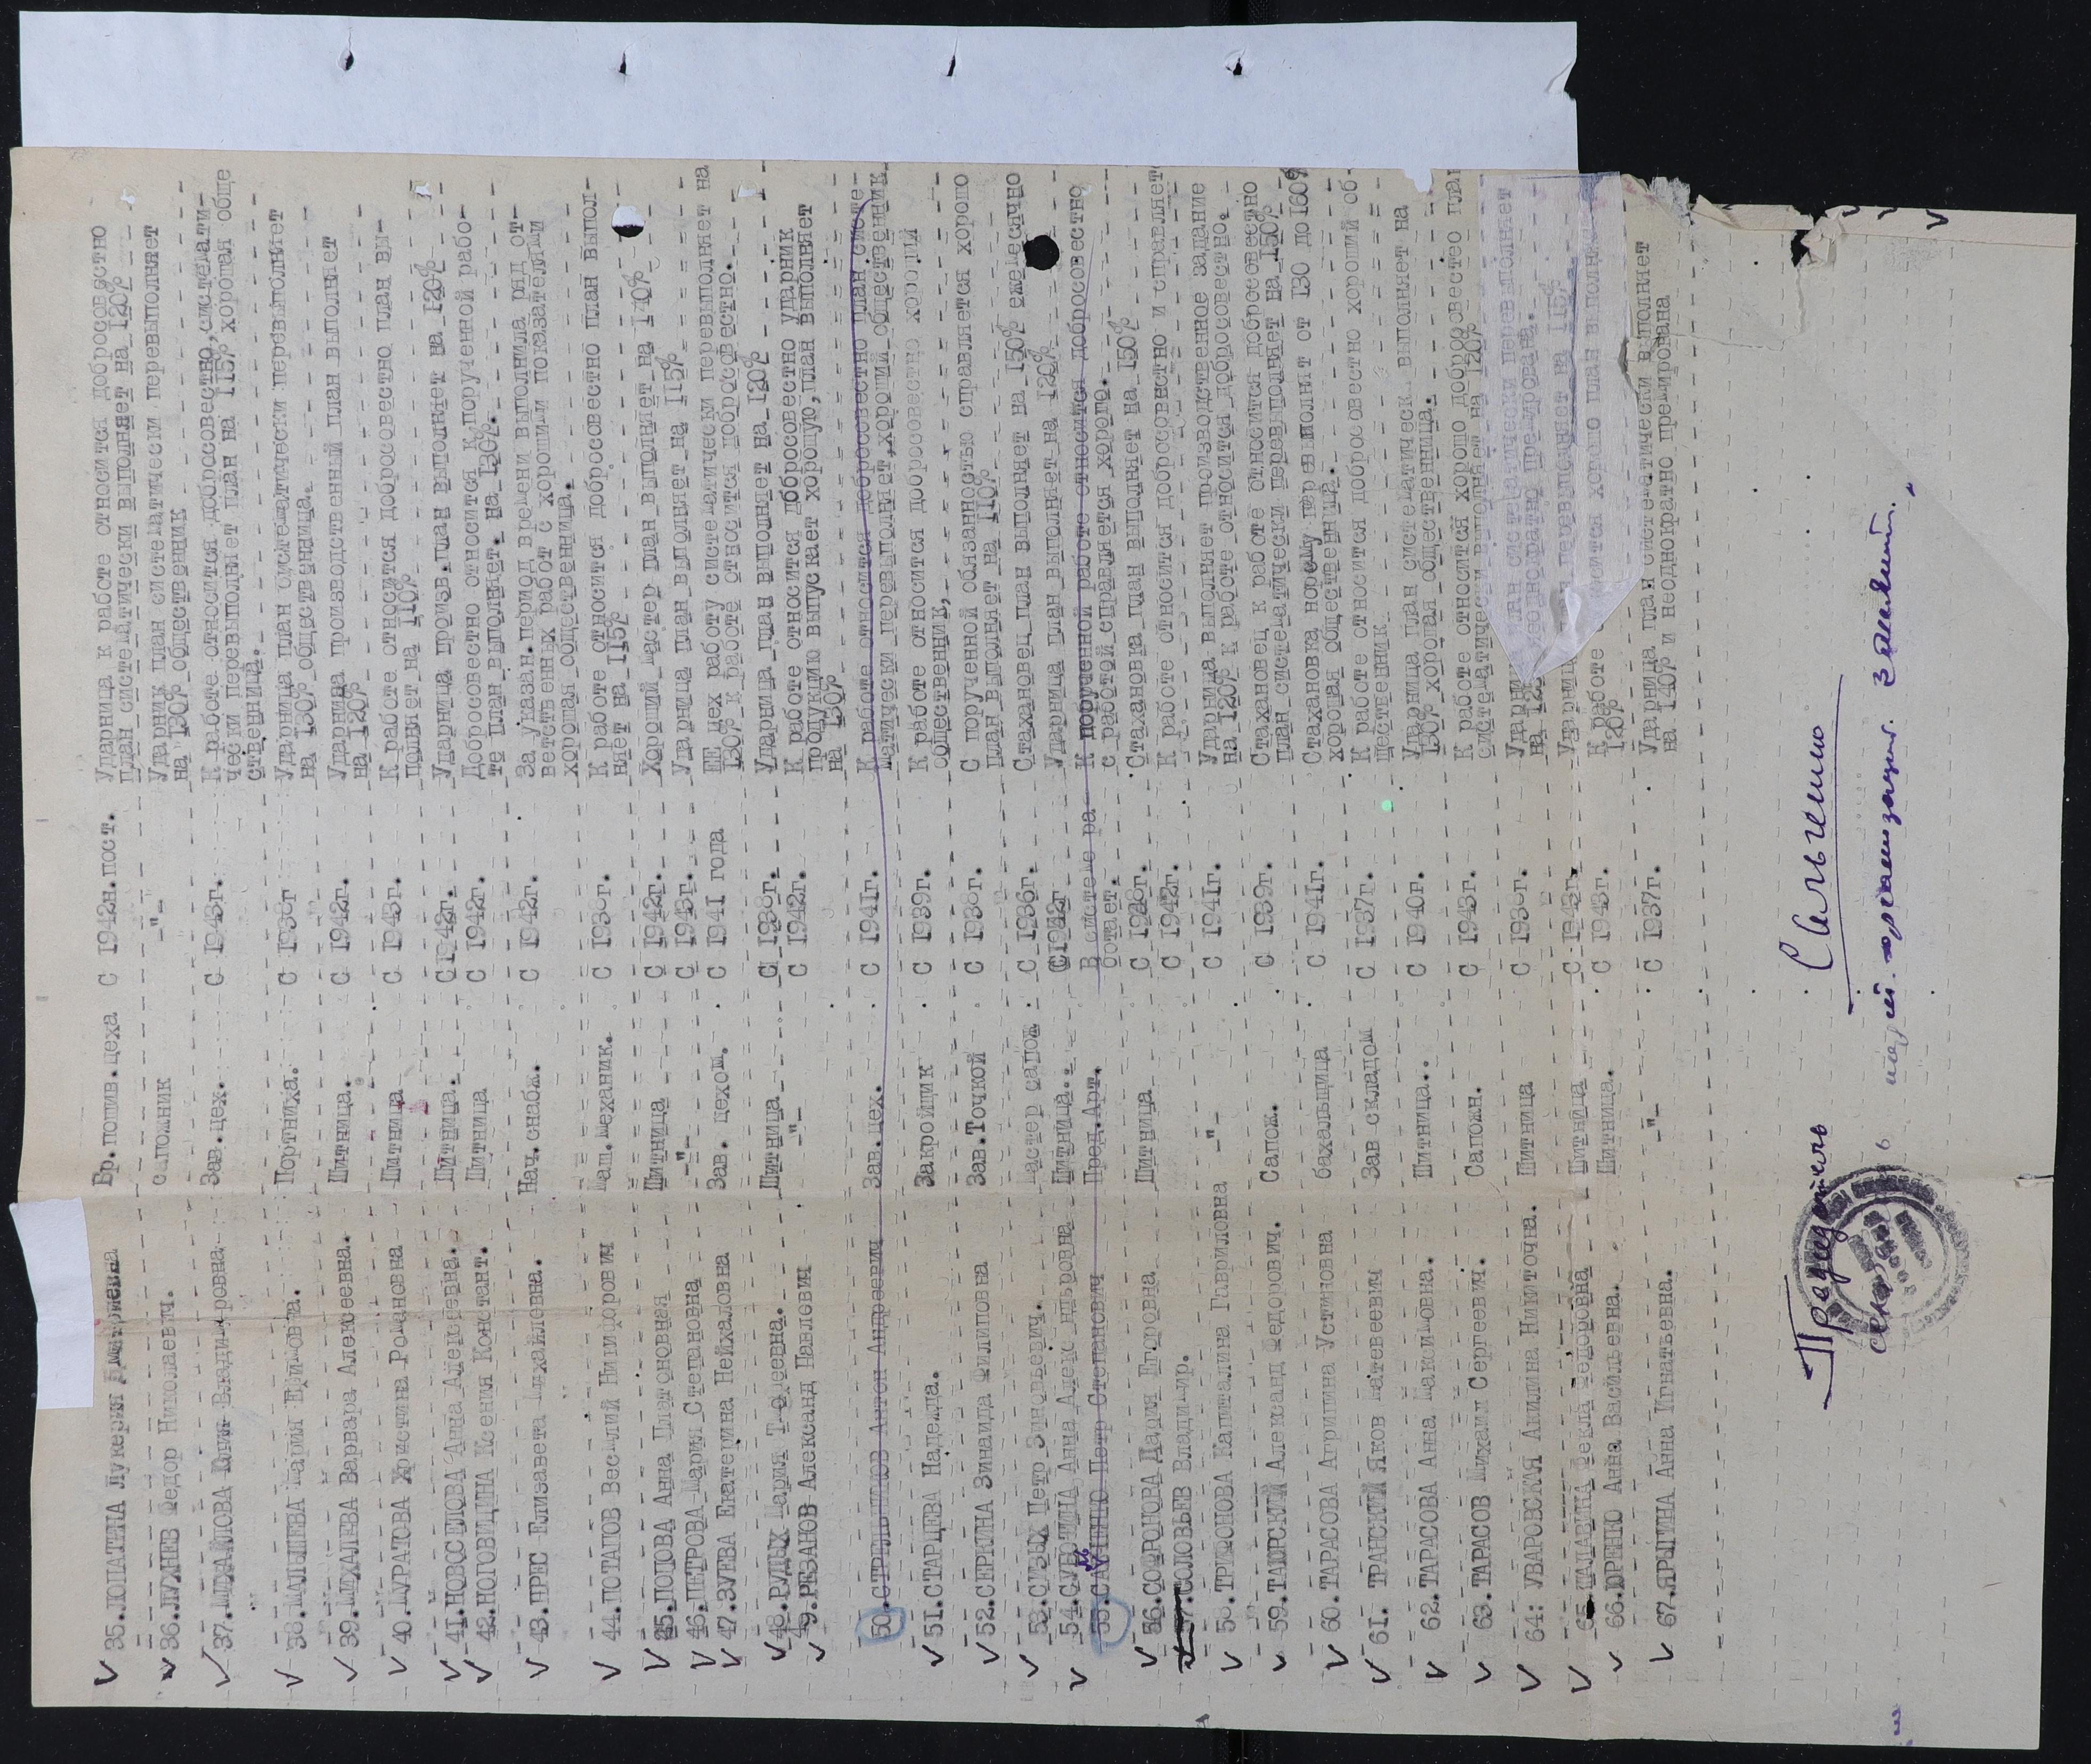 35.ЛОПАТИНА Лукерия Дмитриевна Бр.пошив.цеха С 1942н.пост. Ударница к работе относится добросовестно
план систематически выполняет на 120%
36.ЛУЖНЕВ Федор Николаевич. сапожник -"- Ударник план систематически перевыполняет
на 130% общественник
Зав.цех. С 1943г. К работе относится добросовестно,системати-
чески перевыполняет план на 115% хорошая обще
ственница.
38.МАЛЫШЕВА Мария Ефимовна. Портниха. С 1938г Ударница план систематически перевыполняет
на 130% общественница.
39.МИХАЛЕВА Варвара Алексеевна. Шитница. С 1942г. Ударница производственный план выполняет
на 120%
40.МУРАТОВА Христина Романовна Шитница С 1943г. К работе относится добросовестно план вы-
полняет на 110%
41.НОВОСЕЛОВА Анна Алексеевна. Шитница. С 1942г. Ударница произв.план выполняет на 120%
42.НОГОВИЦИНА Ксения Констант. Шитница С 1942г. Добросовестно относится к порученной рабо-
те план выполняет. на 130%.
43.ПРЕС Елизавета Михайловна. Нач.снабж. С 1942г. За указан.период времени выполнила ряд от-
ветственных работ с хорошими показателями
хорошая общественница.
44.ПОТАПОВ Весмлий Никифорович маш.механик. С 1938г. К работе относится добросовестно план выпол-
няет на 115%
45.ПОПОВА Анна Платоновная Шитница С 1942г. Хороший мастер план выполняет на 140%
46.ПЕТРОВА Мария Степановна -"- С 1943г. Ударница план выполняет на 115%
47.ЗУЕВА Екатерина Нейхаловна Зав. цехом. С 1941 года ЕЕ цех работу систематически перевыполняет на
130% к работе относится добросовестно.
48.РУДЫХ Мария Тофеевна. Шитница С 1938г. Ударница план выполняет на 120%
49.РЕЗАНОВ Александ Павлович -"- С 1942г. К работе относится добросовестно ударник
продукцию выпускает хорошую,план выполняет
на 130%
50.СТРЕЛЬНИКОВ Антон Андреевич Зав.цех. С 1941г. К работе относится добросовестно план систе-
матически перевыполняет,хороший общественник
51.СТАРЦЕВА Надежда. Закройщик С 1939г. К работе относится добросовестно хороший
общественник,
52.СЕРКИНА Зинаида Филиповна Зав.Точкой С 1938г. С порученной обязанностью справляется хорошо
план выполняет на 110%
53.СИЗЫХ Петр Зиновьевич. мастер сапож С 1936г. Стахановец план выполняет на 150% ежемесячно
54.СУВОТИНА Анна Александровна Шитница.. С 1942г Ударница план выполняет на 120%
55.САЧЕНКО Петр Степанович Пред.Арт. В системе ра- К порученной работе относится добросовестно
ботает. с работой справляется хорошо.
56.СОФРОНОВА Дария Егоровна Шитница С 1938г. Стахановка план выполняет на 150%
57.СОЛОВЬЕВ Владимир. С 1942г. К работе относится добросовестно и справляет
58.ТРИФОНОВА Капиталина Гавриловна -"- С 1941г. Ударница выполняет производственное задание
на 120% к работе относится добросовестно.
59.ТАЮРСКИЙ Александ Федорович. Сапож. С 1939г. Стахановец к работе относится добросовестно
план систематически перевыполняет на 150%
60.ТАРАСОВА Агришина Устиновна бахальщица С 1941г. Стахановка норому перевыполнит от 130 до 160%
хорошая общественница.
61. ТРАНСКИЙ Яков Матвеевич Зав складом С 1937г. К работе относится добросовестно хороший об-
щественник
62.ТАРАСОВА Анна Максимовна. Шитница.. С 1940г. Ударница план систематическ выполняет на
130% хорошая общественница.
63.ТАРАСОВ Михаил Сергеевич. Сапожн. С 1943г. К работе относится хорошо добросовестео план
систематически выполняет на 120%
64: УВАРОВСКАЯ Акилина Никиточна. Шитница С 1938г. Ударница план систематически перевыполняет
на неоднократно премирована.
65.ШАЛАВИНА Фекла Федоровна Шитница С 1943г. Ударница перевыполняет на 115%
66.ЮРЕНЮ Анна Васильевна. Шитница. С 1943г. К работе относится хорошо план выполняет
120%
67.ЯРЫГИНА Анна Игнатьевна. -"- С 1937г. Ударница план систематически выполняет
на 140% и неоднократно премирована
Председатель Сальченко